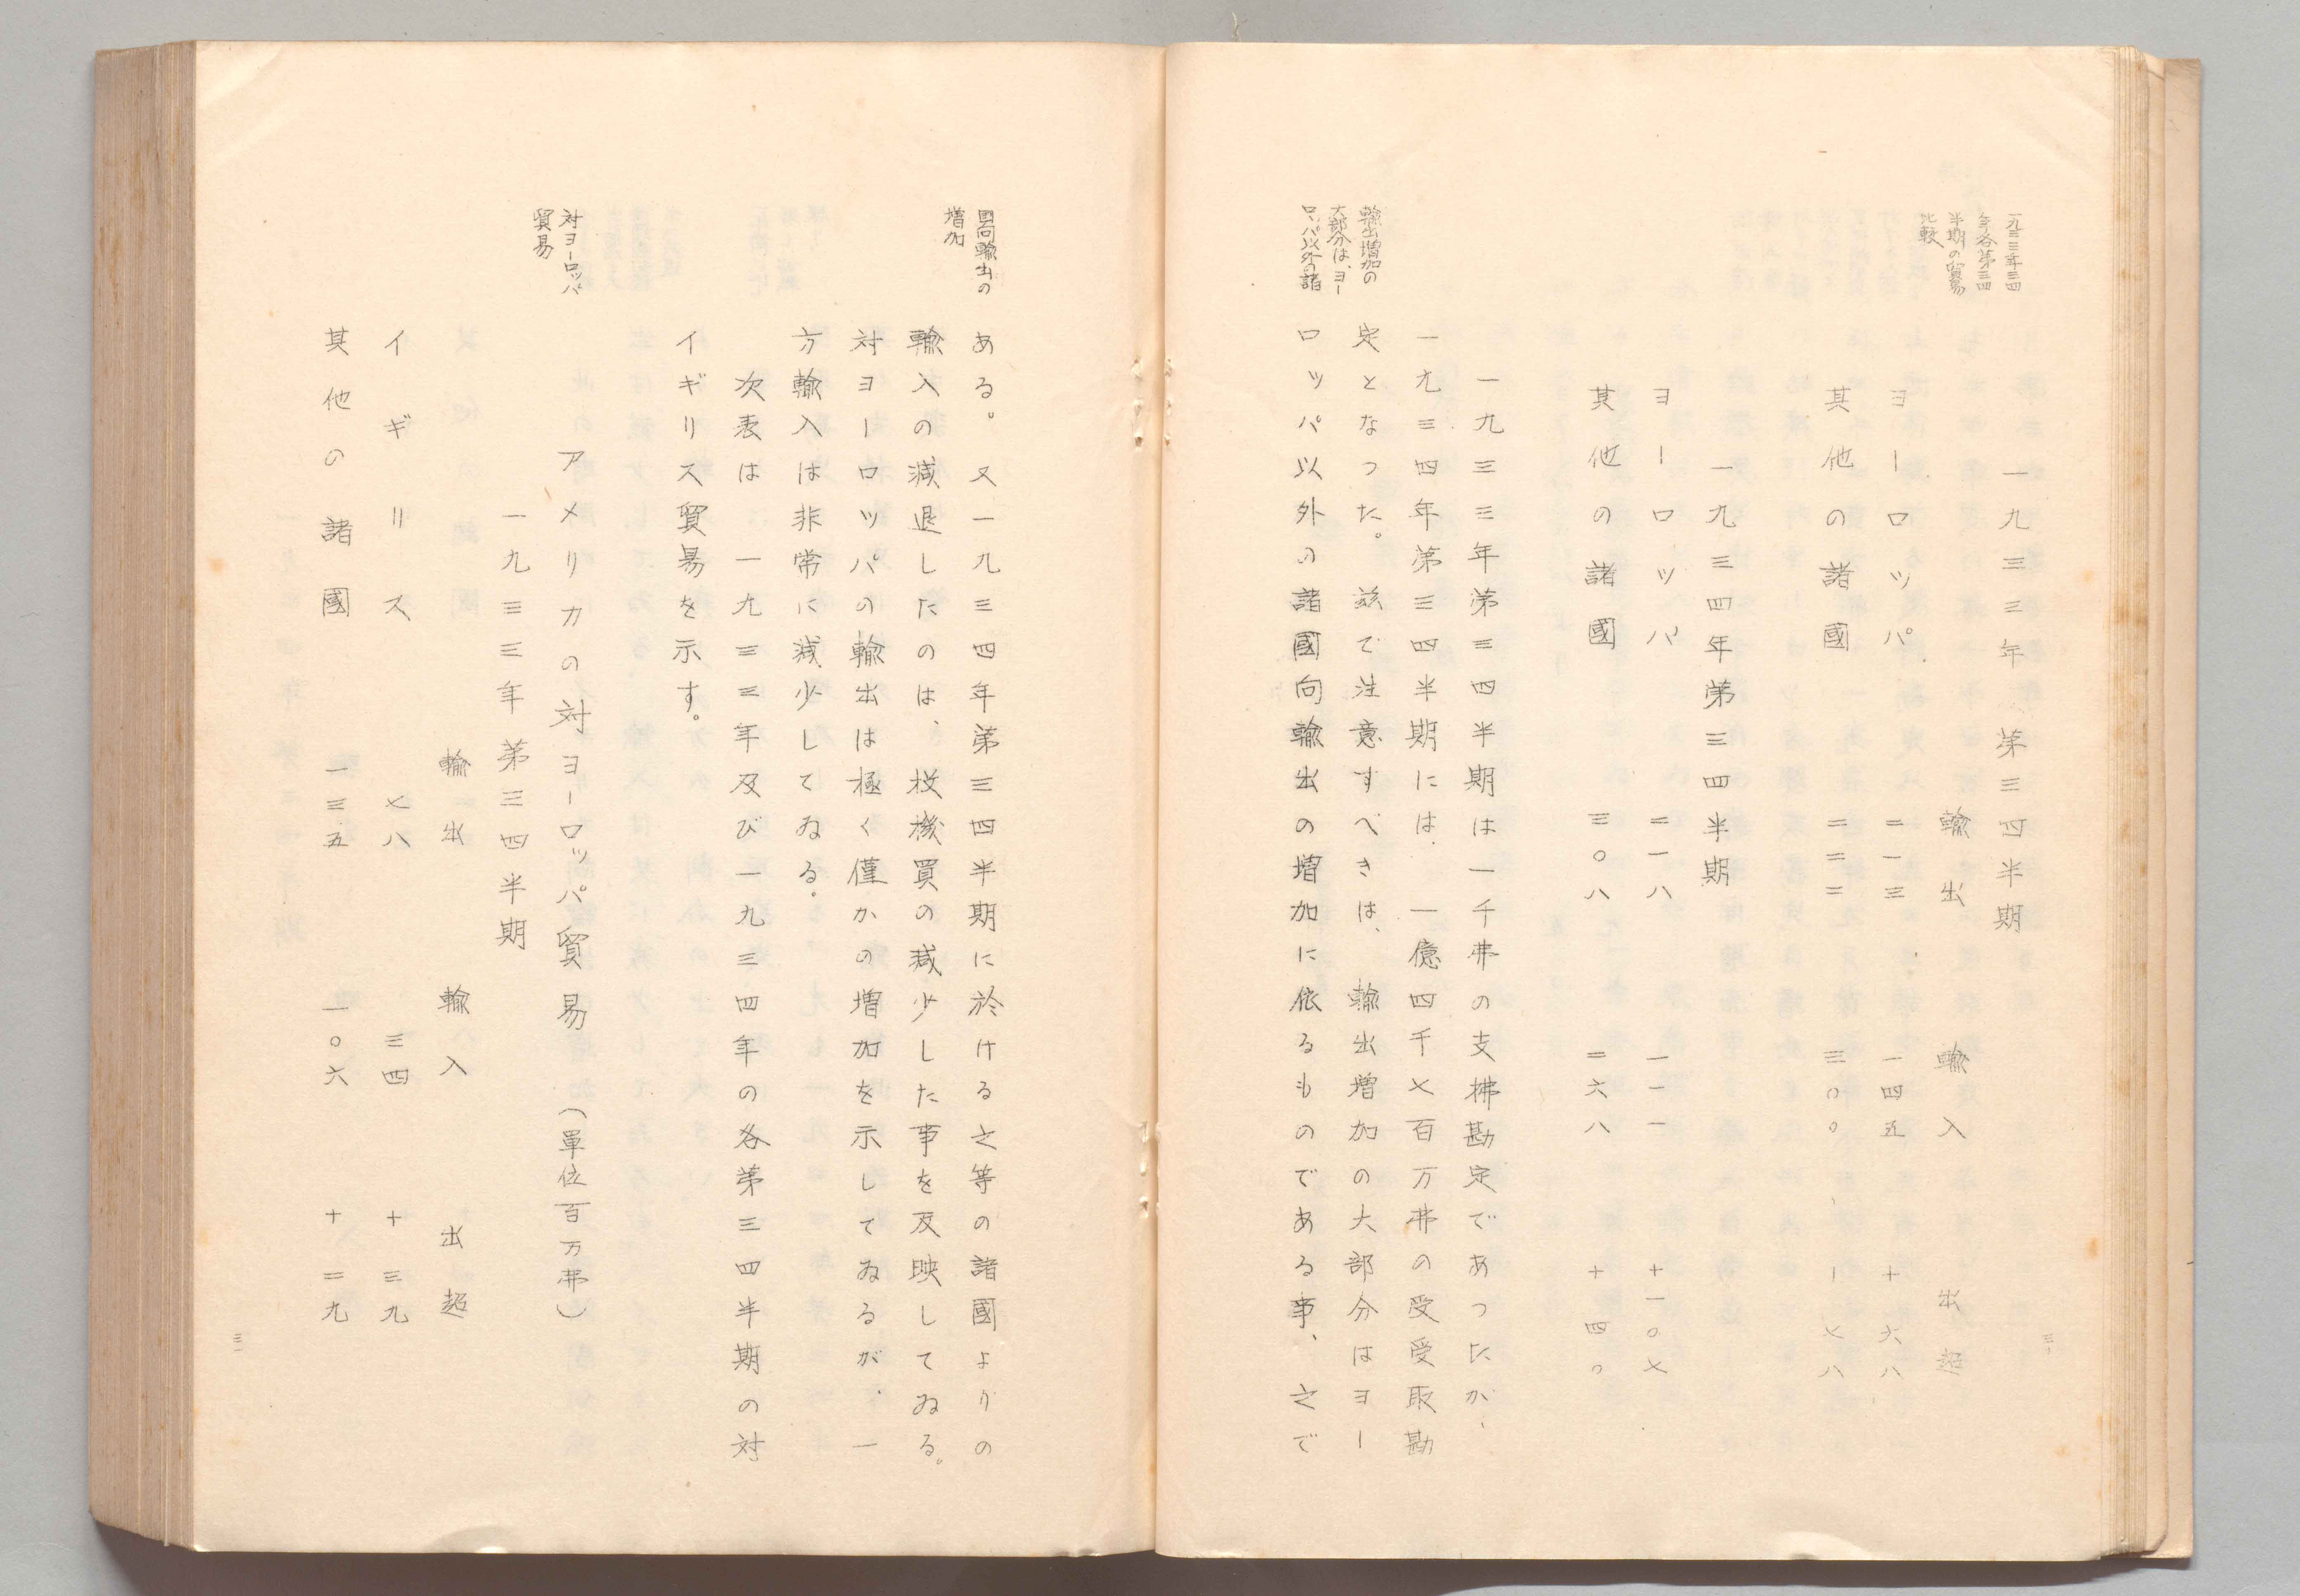 一九三三年三四
年各第三四
半期の貿易
比較
一九三三年 第三四半期
輸出 輸入 出超
ヨーロッパ 二一三 一四五 +六八
其他の諸國 二二二 三〇〇 -七八
一九三四年第三四半期
ヨーロッパ 二一八 一一一 +一〇七
其他の諸國 三〇八 二六八 +四〇
一九三三年第三四半期は一千弗の支拂勘定であつたが、
一九三四年第三四半期には、一億四千七百万弗の受受取勘
輸出増加の
大部分は、ヨー
ロッパ以外の諸
定となつた。玆で注意すべきは、輸出増加の大部分はヨー
ロッパ以外の諸國向輸出の増加に依るものである事、之で
三〇
國向輸出の
増加
ある。又一九三四年第三四半期に於ける之等の諸國よりの
輸入の減退したのは、投機買の減少した事を反映してゐる。
対ヨーロッパの輸出は極く僅かの増加を示してゐるが、一
方輸入は非常に減少してゐる。
次表は一九三三年及び一九三四年の各第三四半期の対
イギリス貿易を示す。
対ヨーロッパ
貿易
アメリカの対ヨーロッパ貿易 (單位百万弗)
一九三三年第三四半期
輸出 輸入 出超
イギリス 七八 三四 +三九
其他の諸國 一三五 一〇六 +二九
三一